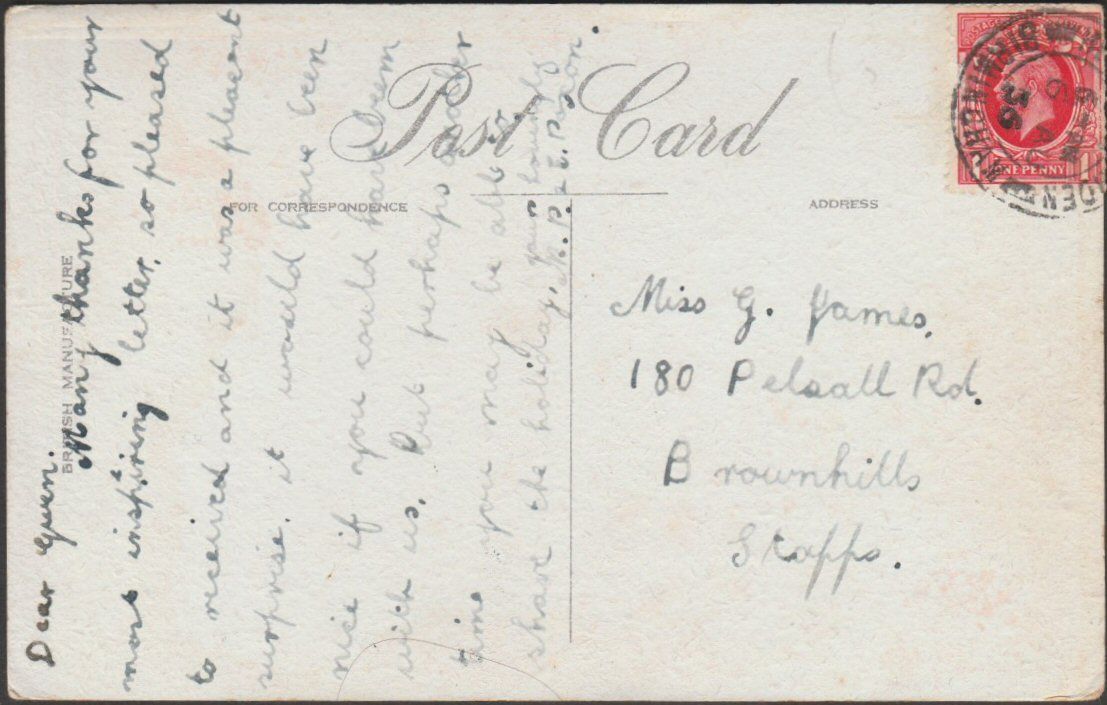 Post Card
FOR CORRESPONDENCE
ADDRESS
BRITISH MANUFACTURE
Dear Gwen.
Many thanks for your
most inspiring letter, so pleased
to received and it was a pleasant
surprise. it would have been
nice if you could have been
with us. But perhaps another
time you may be able to
share the holiday.
yours
M. P. & E. P.
Miss G. James,
180 Pelsall Rd.
Brownhills
Staffs.
POSTAGE
ONE PENNY
BIRMINGHAM
36